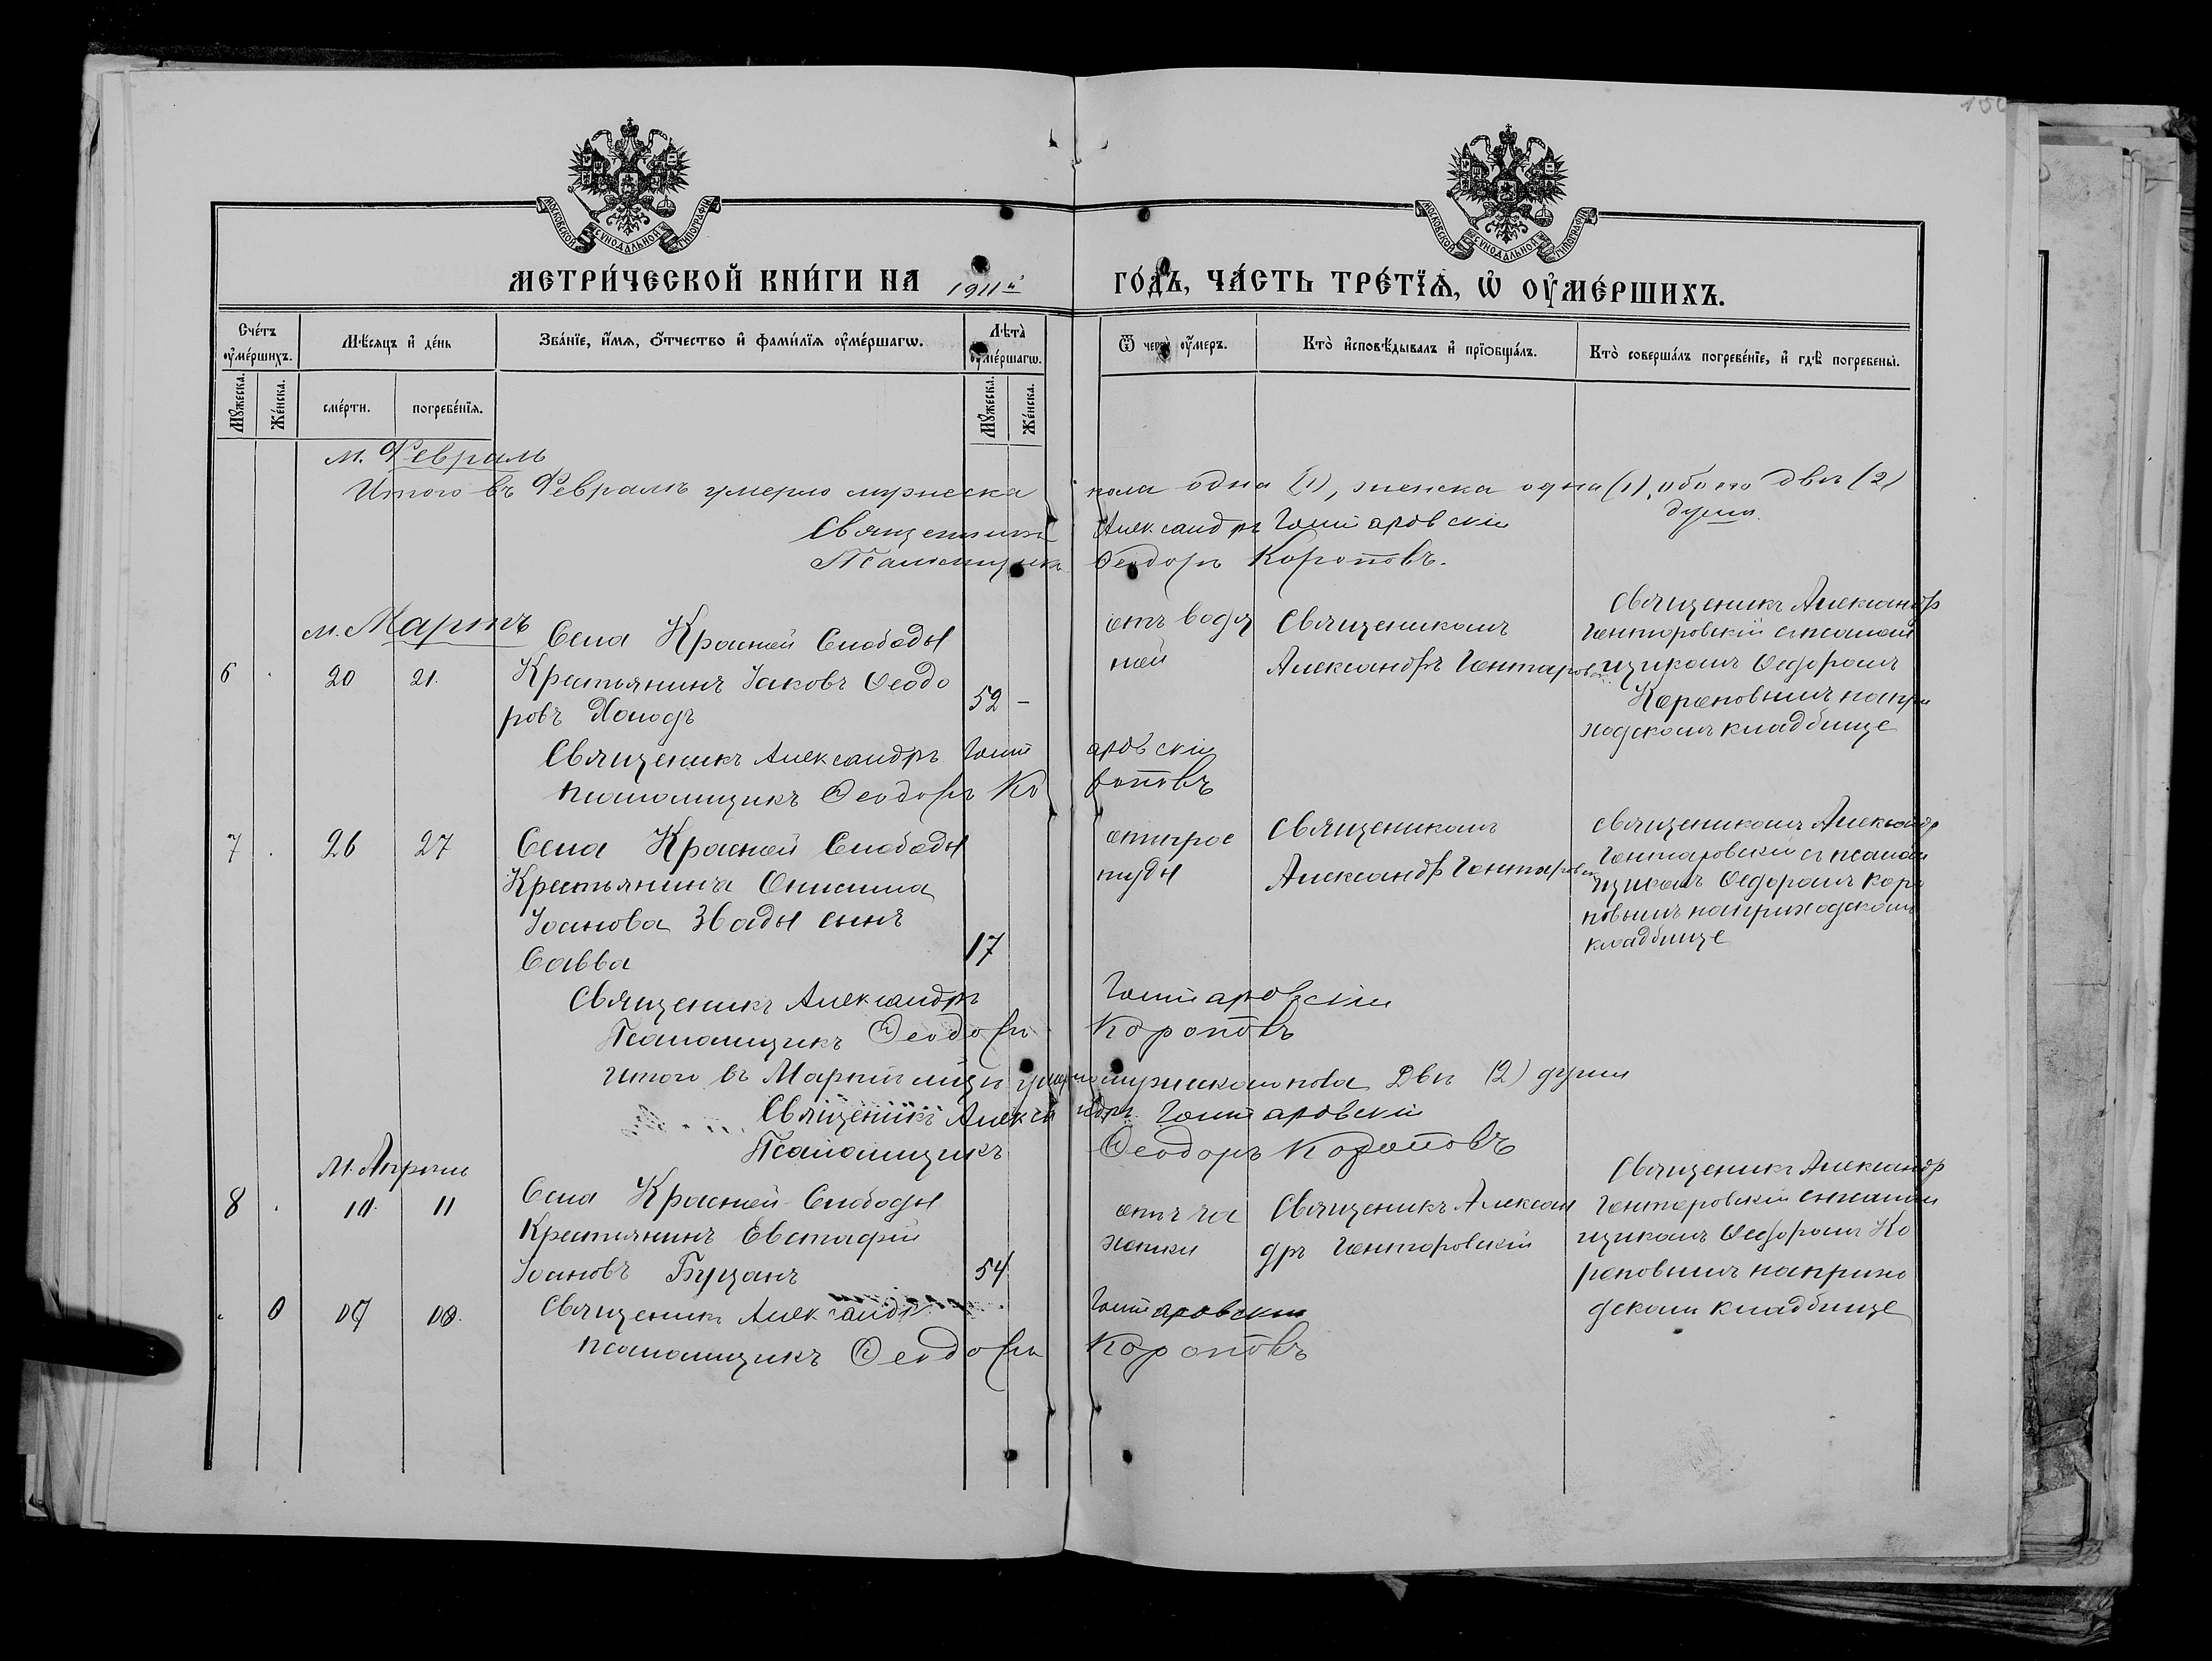 150
МОСКОВСКОЙ СѴНОДАЛЬНОЙ ТИПОГРАФІИ
МОСКОВСКОЙ СѴНОДАЛЬНОЙ ТИПОГРАФІИ
МЕТРИ́ЧЕСКОЙ КНИ́ГИ НА 1911й ГО́ДЪ, ЧА́СТЬ ТРЕ́ТЇѦ, Ѡ҆ ОУ҆МЕ́РШИХЪ.
Сче́тъ оу҆ме́ршихъ.
Мѣ́сѧцъ и҆ де́нь
Зва́нїе, и҆́мѧ, ѻ҆́тчество и҆ фами́лїѧ оу҆ме́ршагѡ.
Лѣта̀ оу҆ме́ршагѡ.
Ѿ чегѡ̀ оу҆́меръ.
Кто̀ и҆сповѣ́дывалъ и҆ прїѡбща́лъ.
Кто̀ соверша́лъ погребе́нїе, и҆ гдѣ̀ погребены̀.
Мꙋ́жеска.
Же́нска.
сме́рти.
погребе́нїѧ.
Мꙋ́жеска.
Же́нска.
м. Февраль
Итого въ Февралѣ умерло мужеска пола одна (1), женска одна (1), обоего двѣ (2)
души.
Священникъ Александръ Гонтаровскій
Псаломщикъ Ѳеодоръ Короповъ.
м. Мартъ
6 20 21.
Села Красной Слободы
Крестьянинъ Іаковъ Ѳеодо
ровъ Холодъ
52 –
отъ водя
ной
Священикомъ
Александръ Гонтаров
Священикъ Александръ
Гонтаровскій съ псалом
щикомъ Ѳедоромъ
Короповымъ на при
ходскомъ кладбище
Священикъ Александръ Гонтаровскій
псаломщикъ Ѳеодоръ Короповъ
7 26 27
Села Красной Слободы
Крестьянина Онисима
Іоанова Звады сынъ
Савва
17
отъ прос
туды
Священикомъ
Александръ Гонтаровскій
Священикомъ Александр
Гонтаровскій съ псалом
щикомъ Ѳедоромъ Коро
повымъ на приходскомъ
кладбище
Священикъ Александръ Гонтаровскій
Псаломщикъ Ѳеодоръ Короповъ
Итого въ Мартѣ мцѣ умерло мужскаго пола Двѣ (2) души
Священикъ Александръ Гонтаровскій
Псаломщикъ Ѳеодоръ Короповъ
М. Апрель
8 10. 11
Села Красной Слободы
Крестьянинъ Евстафій
Іоановъ Буцанъ
54
отъ ча
хотки
Священикъ Алексан
дръ Гонтаровскій
Священикъ Александр
Гонтаровскій съ псалом
щикомъ Ѳедоромъ Ко
роповымъ на прихо
дскомъ кладбище
Священикъ Александръ Гонтаровскій
псаломщикъ Ѳеодоръ Короповъ